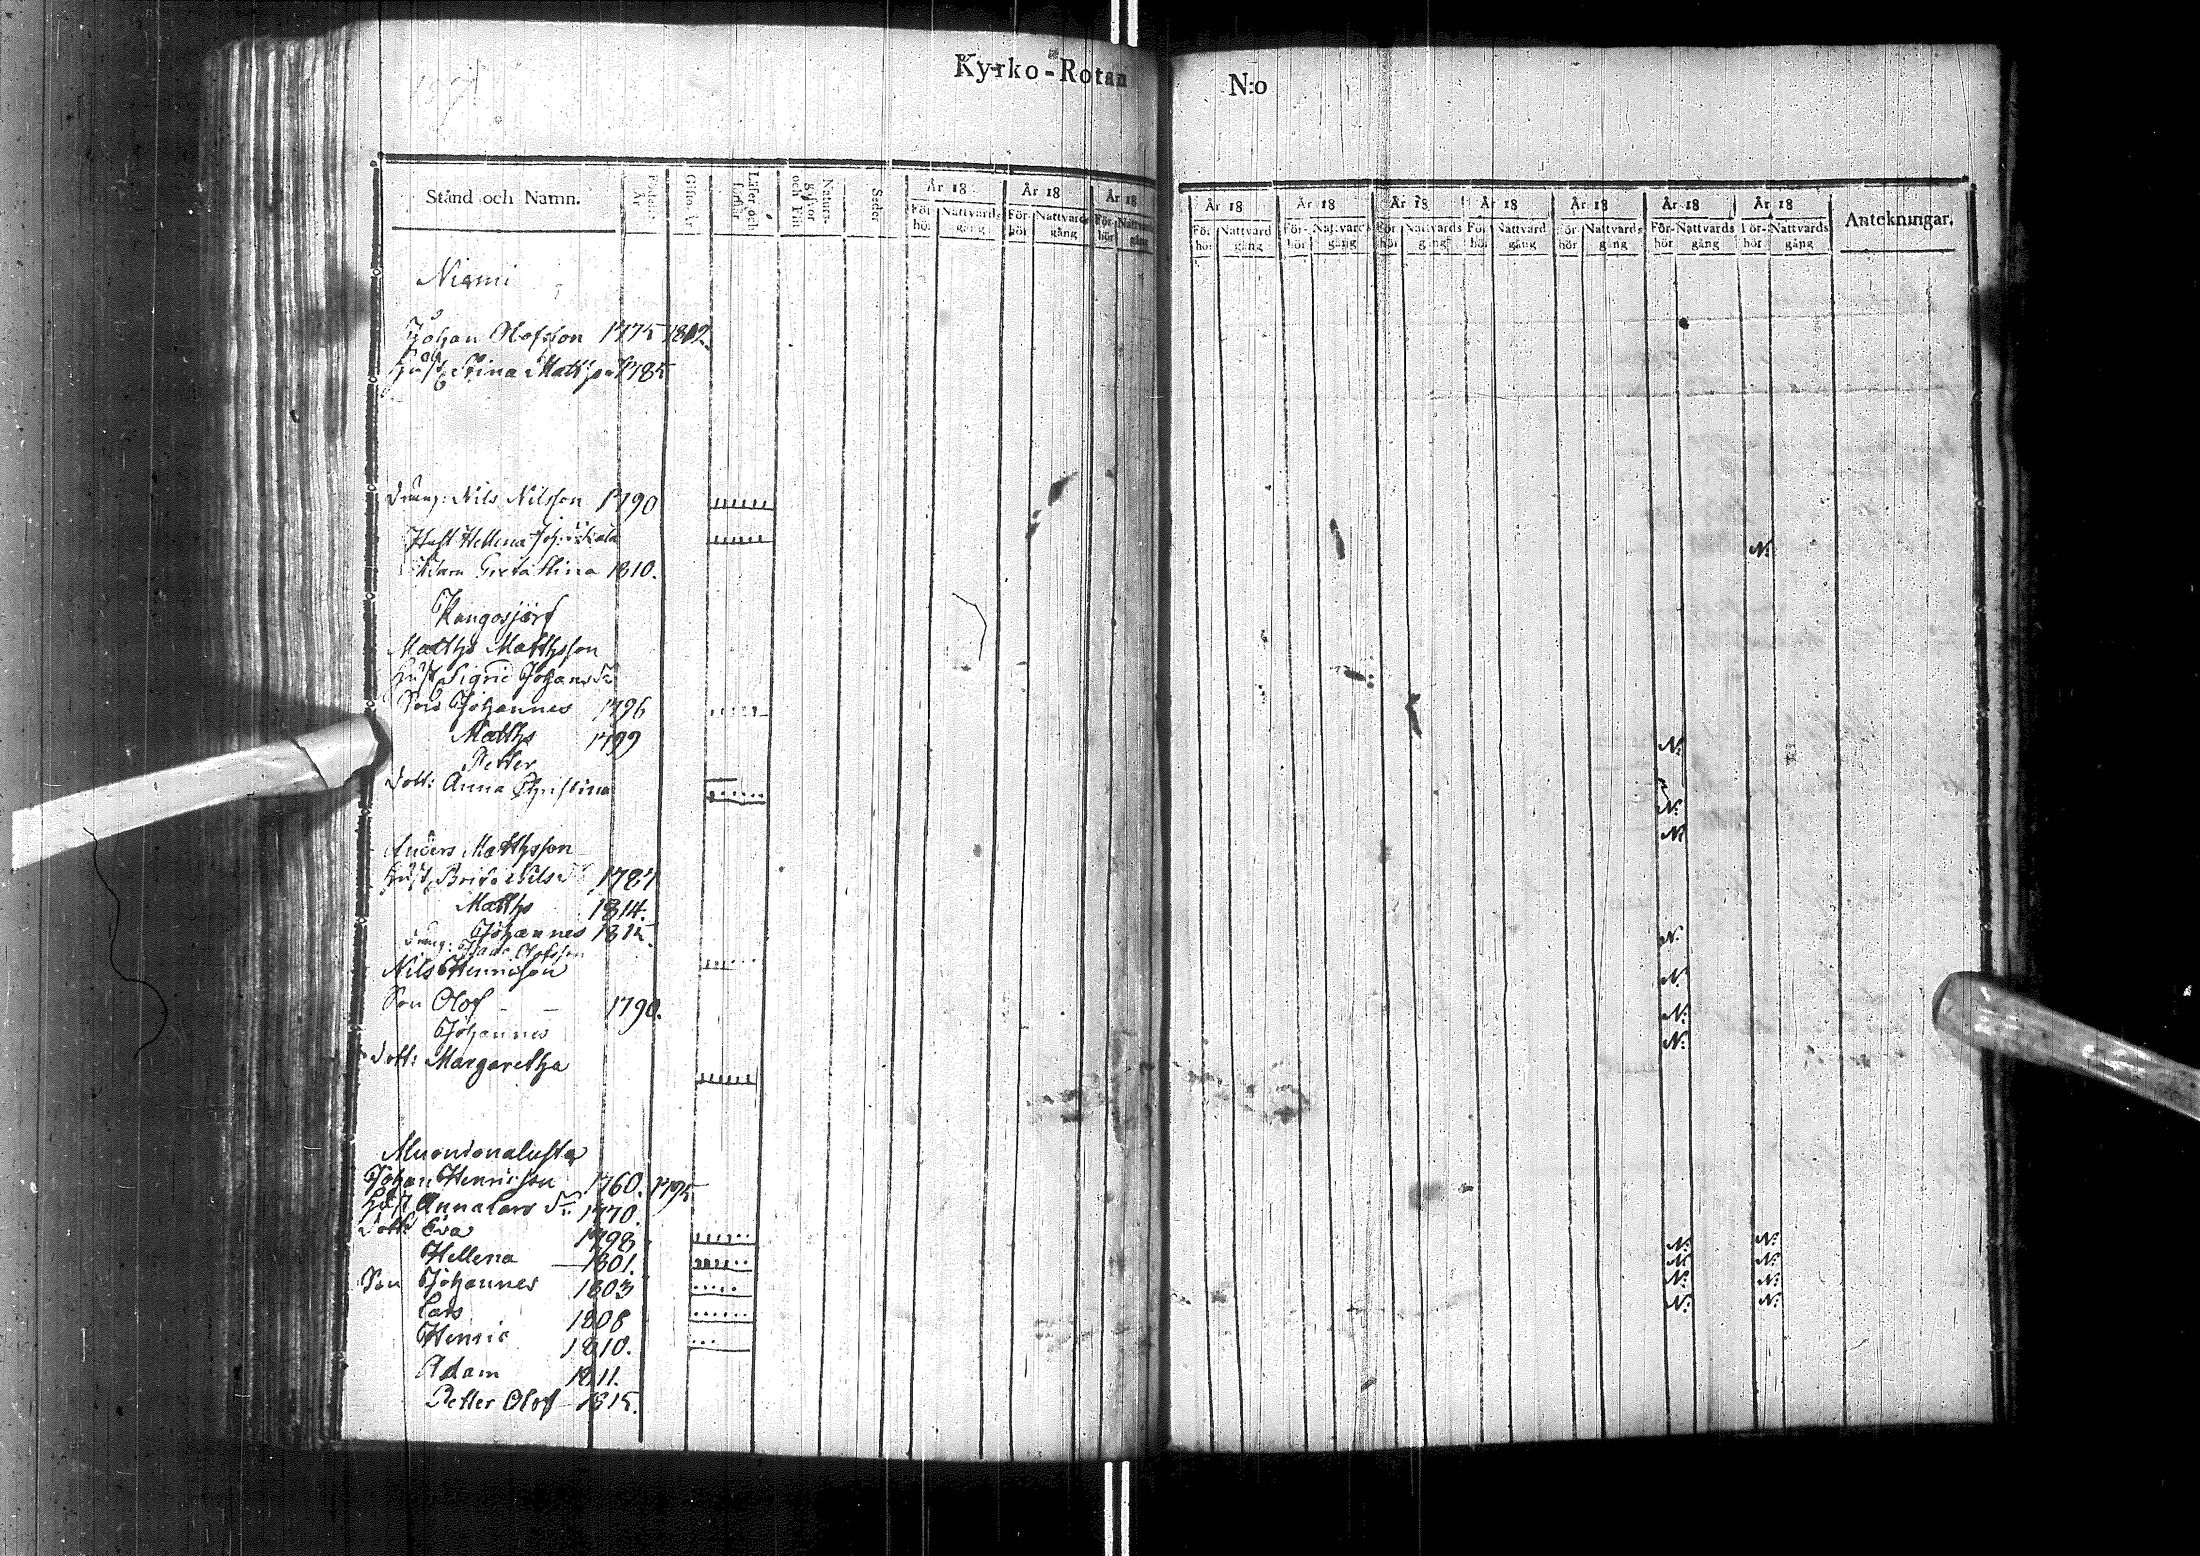 Kyrko-Rotan N:o
Stånd och Namn. Födelse År Gifto År Läser och förstår Naturs-gåfvor och Flit Seder År 18 År 18 År 18 År 18 År 18 År 18 År 18 År 18 År 18 År 18 Anteckningar.
För-hör Nattvards gång För-hör Nattvards gång För-hör Nattvards gång För-hör Nattvards gång För-hör Nattvards gång För-hör Nattvards gång För-hör Nattvards gång För-hör Nattvards gång För-hör Nattvards gång För-hör Nattvards gång
Niemi
Johan Olofsson 1775 1812
Hust. Stina Mattsson 1785
Dräng: Nils Nilsson 1790
Hust Hellena N:
Greta Stina 1810.
Kangosjärf
Matths Matthsson
Hust Sigrid Johansdr
Son Johannes 1796
Matths 1799 N:
Petter
Dott: Anna Christina N:
N:
Anders Matthsson
Hust Brita Nilsdr 1784
Matths 1814.
Johannes 1815. N:
Dräng: Olofsson
Nils Henricson N:
Son Olof - - 1790. N:
Johannes N:
Dott: Margaretha
Muonionalusta
Johan Henricson 1760. 1795
Hust Anna Lars Dr 1770.
Dott: Eva 1798 N: N:
Hellena 1801. N: N:
Son Johannes 1803 N: N:
Lars 1808 N: N:
Henric 1810.
Adam 1811.
Petter Olof 1815.